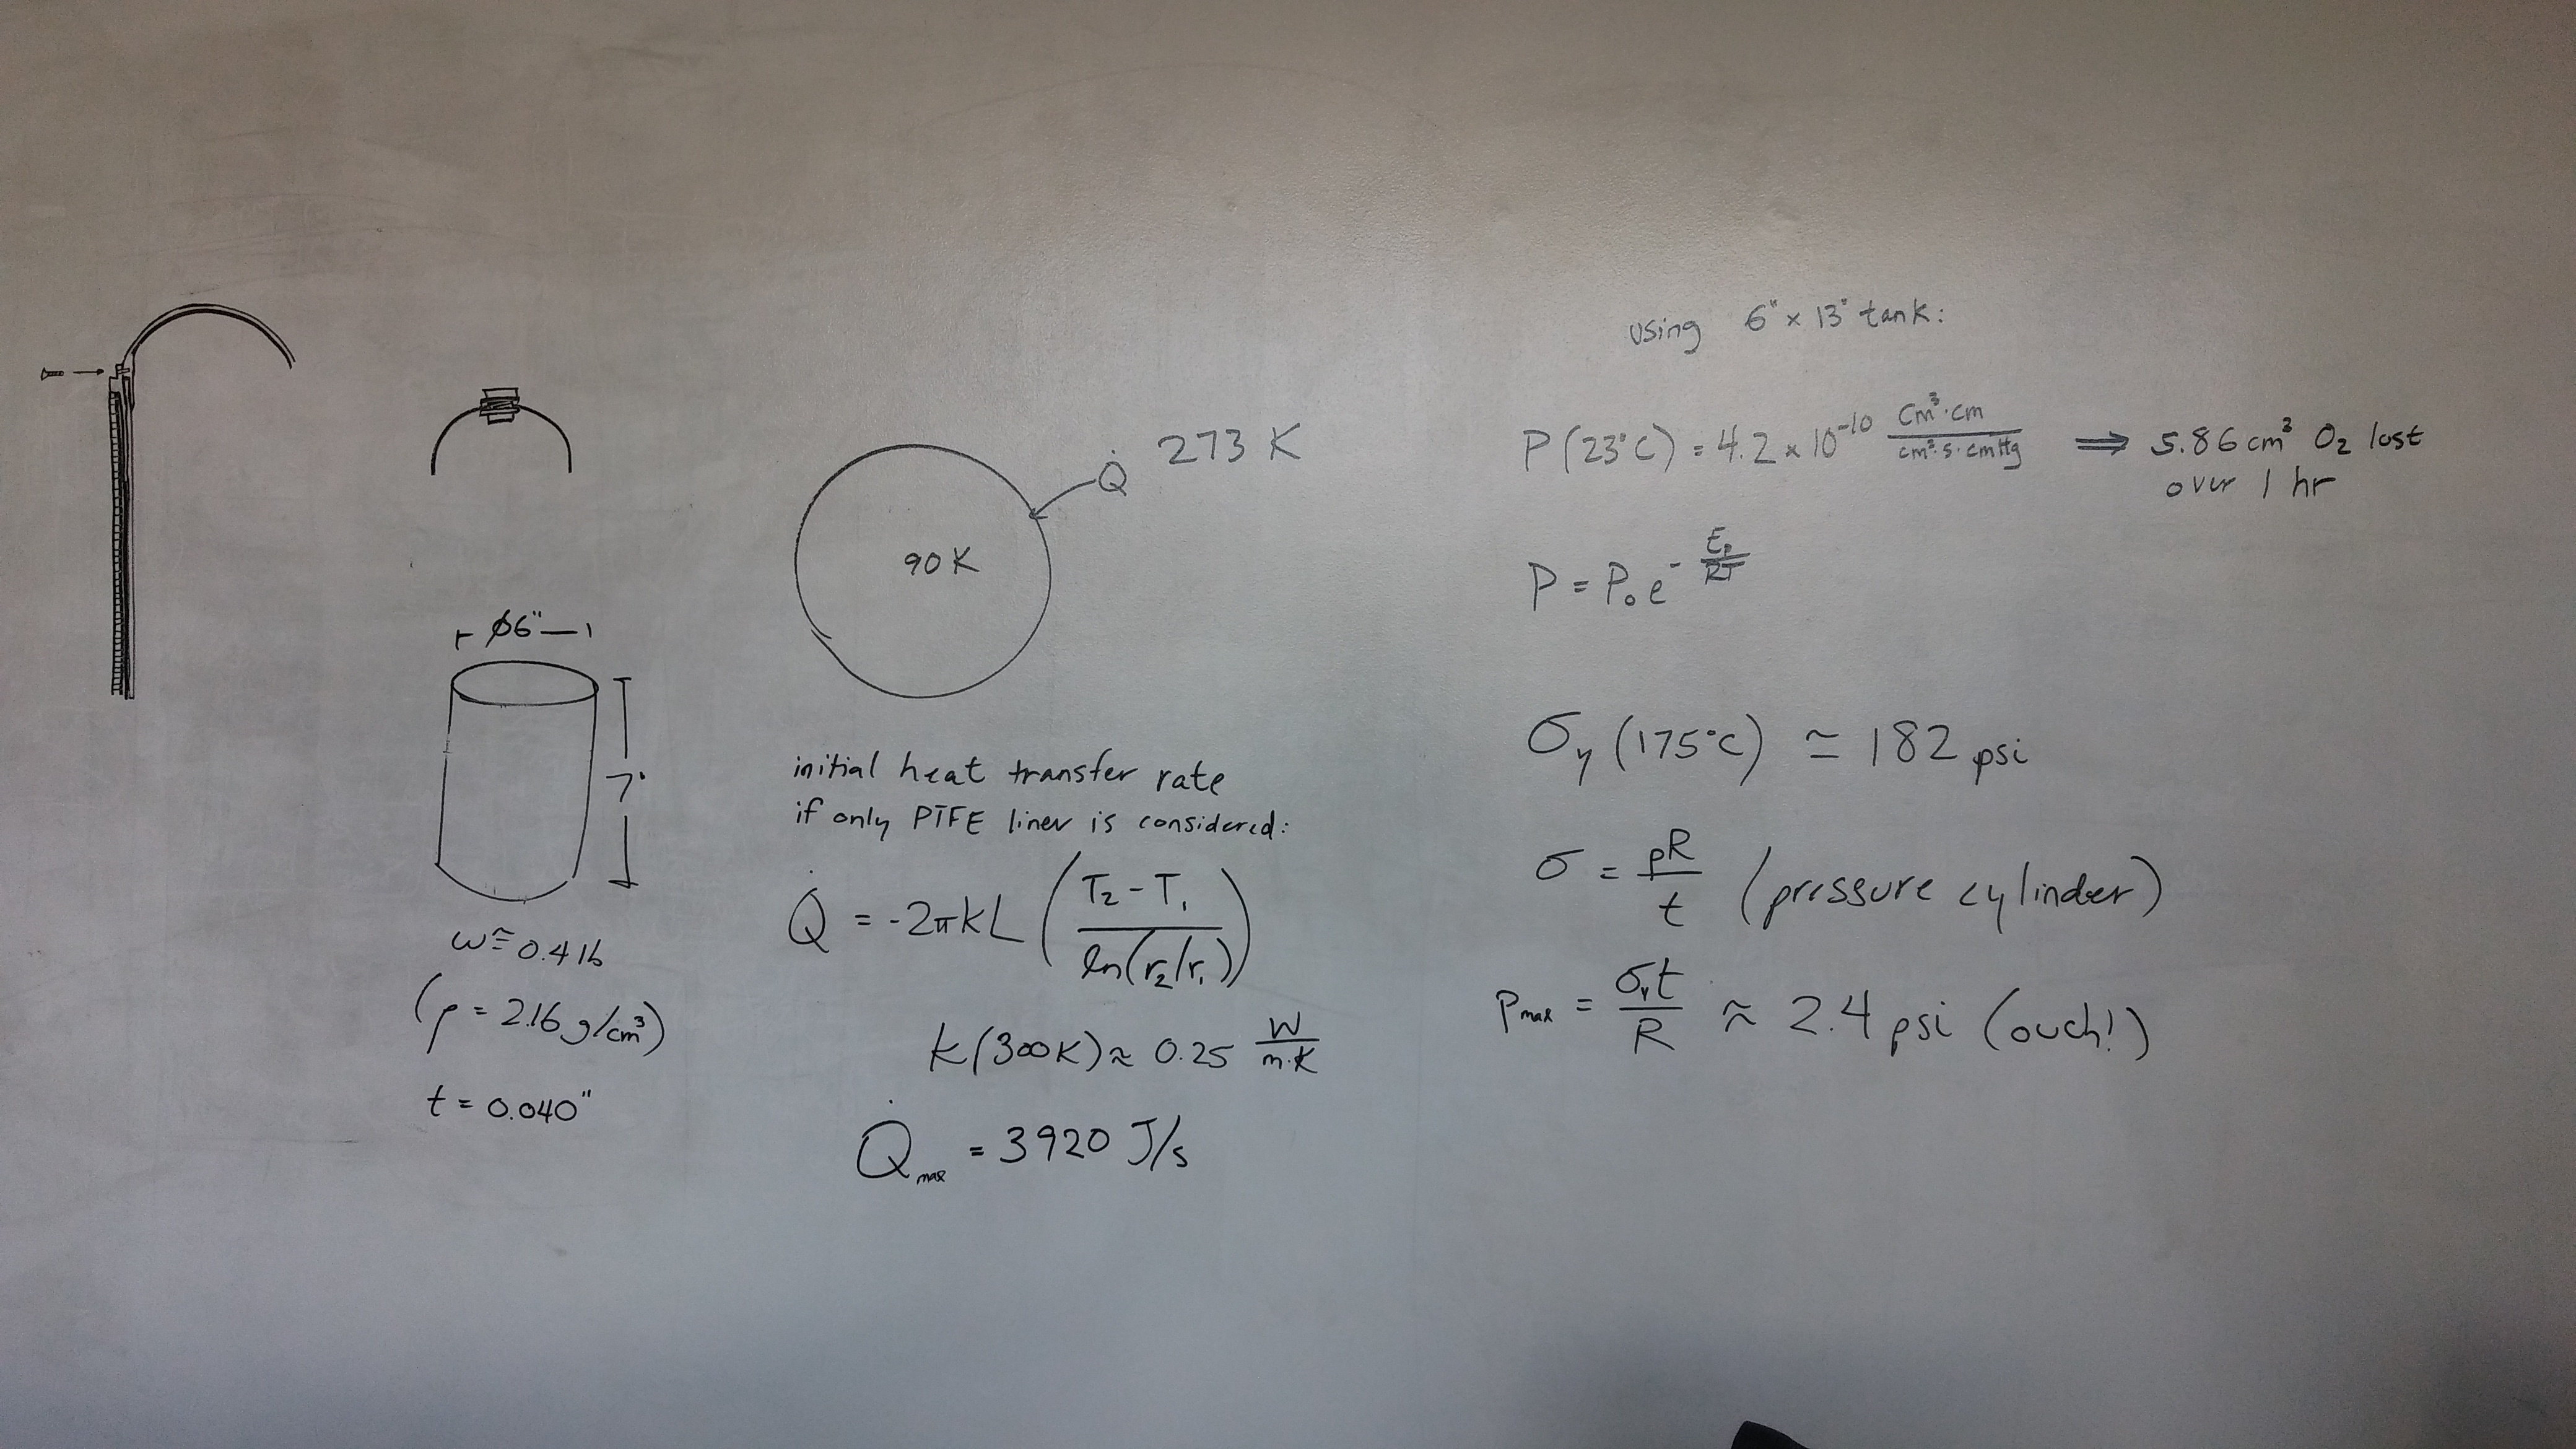 ⌀6"
7"
w ≈ 0.4 lb
(ρ = 2.16 g/cm³)
t = 0.040"
273 K
Q̇
90 K
initial heat transfer rate
if only PTFE liner is considered:
Q̇ = -2πkL ( (T₂ - T₁) / ln(r₂/r₁) )
k(300K) ≈ 0.25 W/m·K
Q̇max = 3920 J/s
using 6" x 13" tank:
P(23°C) = 4.2 x 10⁻¹⁰ cm³·cm / cm²·s·cmHg ⟹ 5.86 cm³ O₂ lost
over 1 hr
P = P₀ e^(-Eₚ/RT)
σy (175°C) ≃ 182 psi
σ = pR/t (pressure cylinder)
Pmax = σyt/R ≈ 2.4 psi (ouch!)